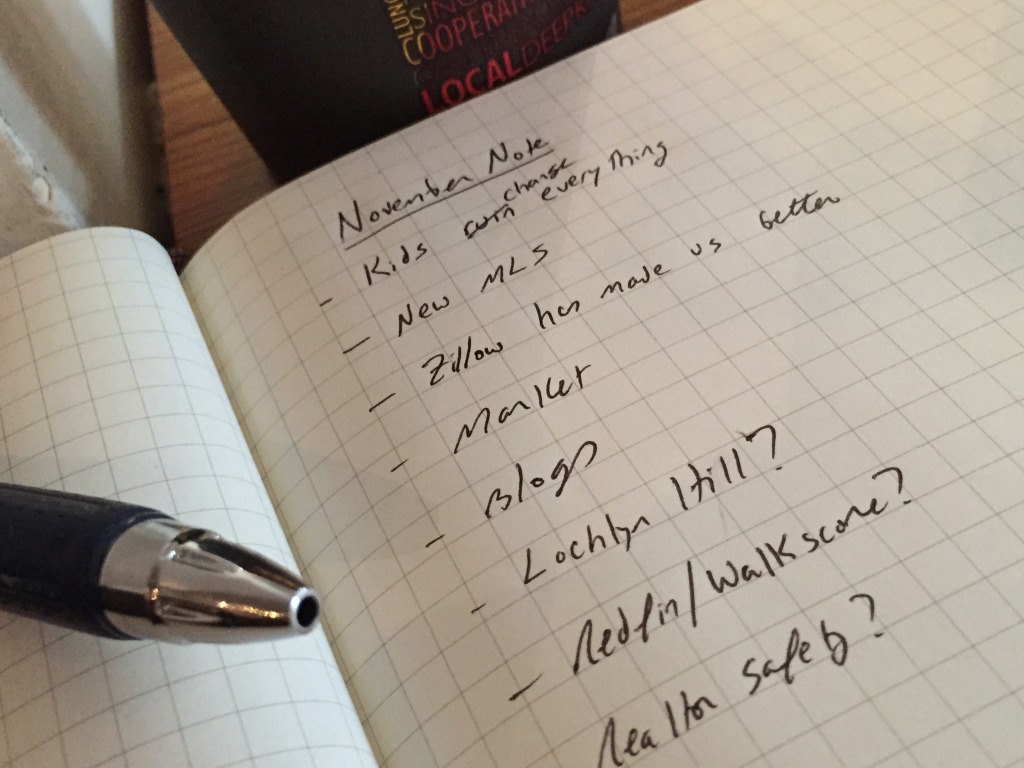 SING
COOPERATI
LOCAL DEEP
November Note
change
- Kids everything
- New MLS
- Zillow has made us better
- Market
- Blogs
- Lochlyn Hill?
- Redfin/Walkscore?
Realtor safety?